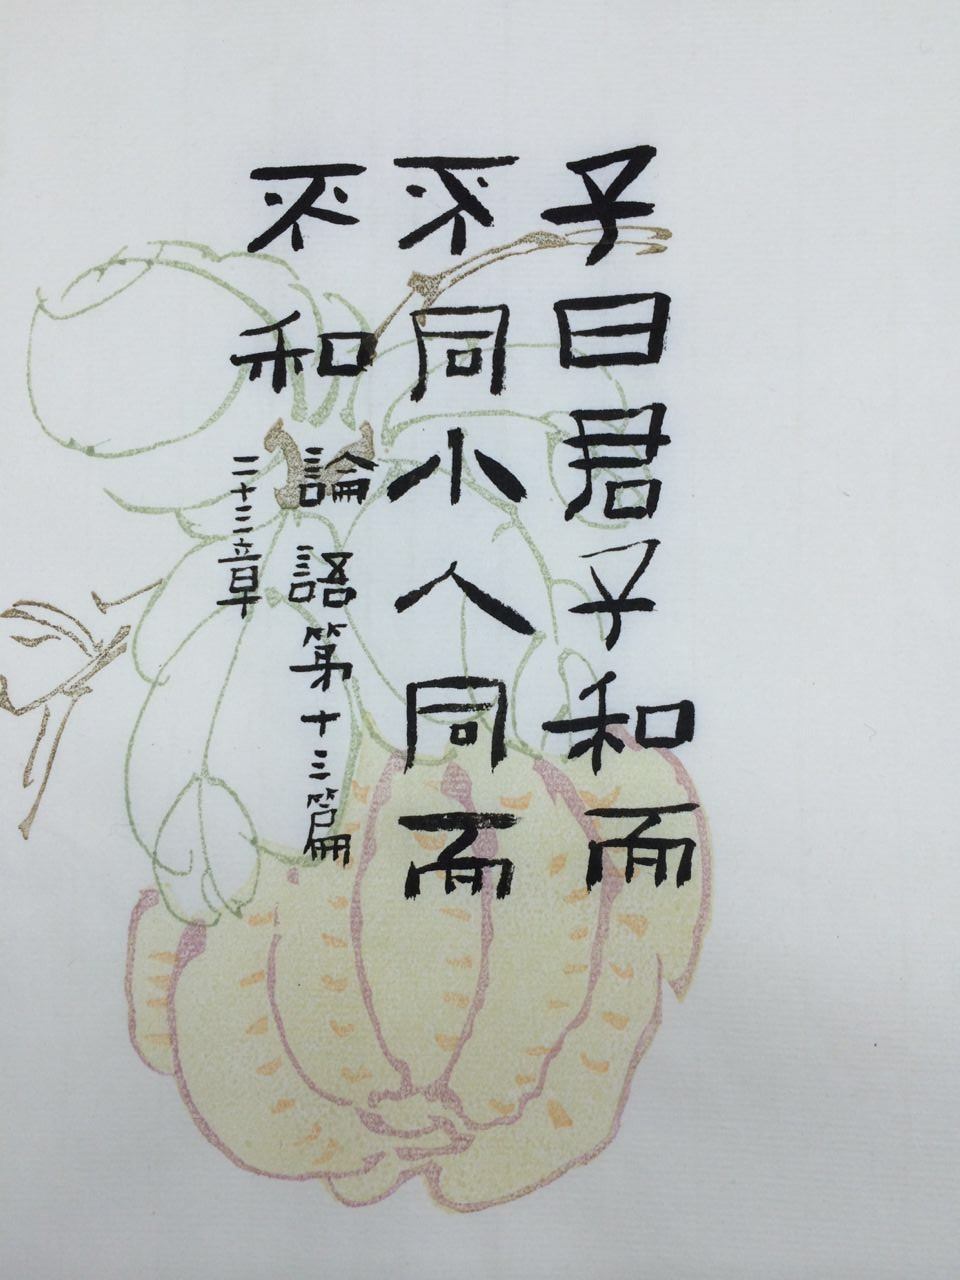 子曰君子和而
不同小人同而
不和
論語第十三篇
二十三章